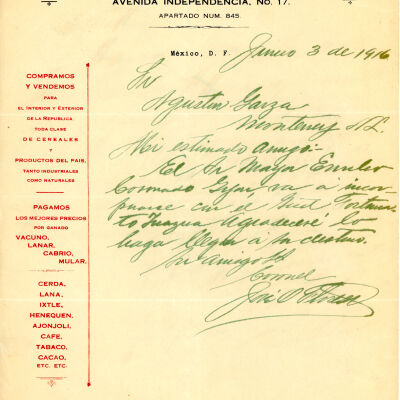 AVENIDA INDEPENDENCIA, No. 17.
APARTADO NUM. 845.
México, D. F. Junio 3 de 1916
COMPRAMOS
Y VENDEMOS
PARA
EL INTERIOR Y EXTERIOR
DE LA REPUBLICA.
TODA CLASE
DE CEREALES
Y
PRODUCTOS DEL PAIS,
TANTO INDUSTRIALES
COMO NATURALES
PAGAMOS
LOS MEJORES PRECIOS
POR GANADO
VACUNO,
LANAR,
CABRIO,
MULAR.
CERDA,
LANA,
IXTLE,
HENEQUEN,
AJONJOLI,
CAFE,
TABACO,
CACAO,
ETC. ETC.
Sr
Agustin Garza
Monterrey N.L.
Mi estimado amigo:-
El Sr Mayor Emilio
va a incor-
porarse con el Gral Fortuna-
to Agradeceré lo
haga llegar a su destino.
Su amigo
Coronel
José